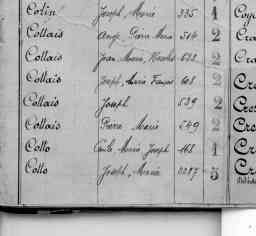 Colin Joseph, Marie 335 1 Coy
Collais Ange, Pierre Marie 514 2 Cra
Collais Jean Marie, 2 Cra
Collais Joseph, Marie François 608 2 Cre
Collais Joseph 539 2 Cres
Collais Pierre Marie 549 2 Cre
Collo Emile, Marie Joseph 168 1 Cre
Collo Joseph, Marie 3 Cr